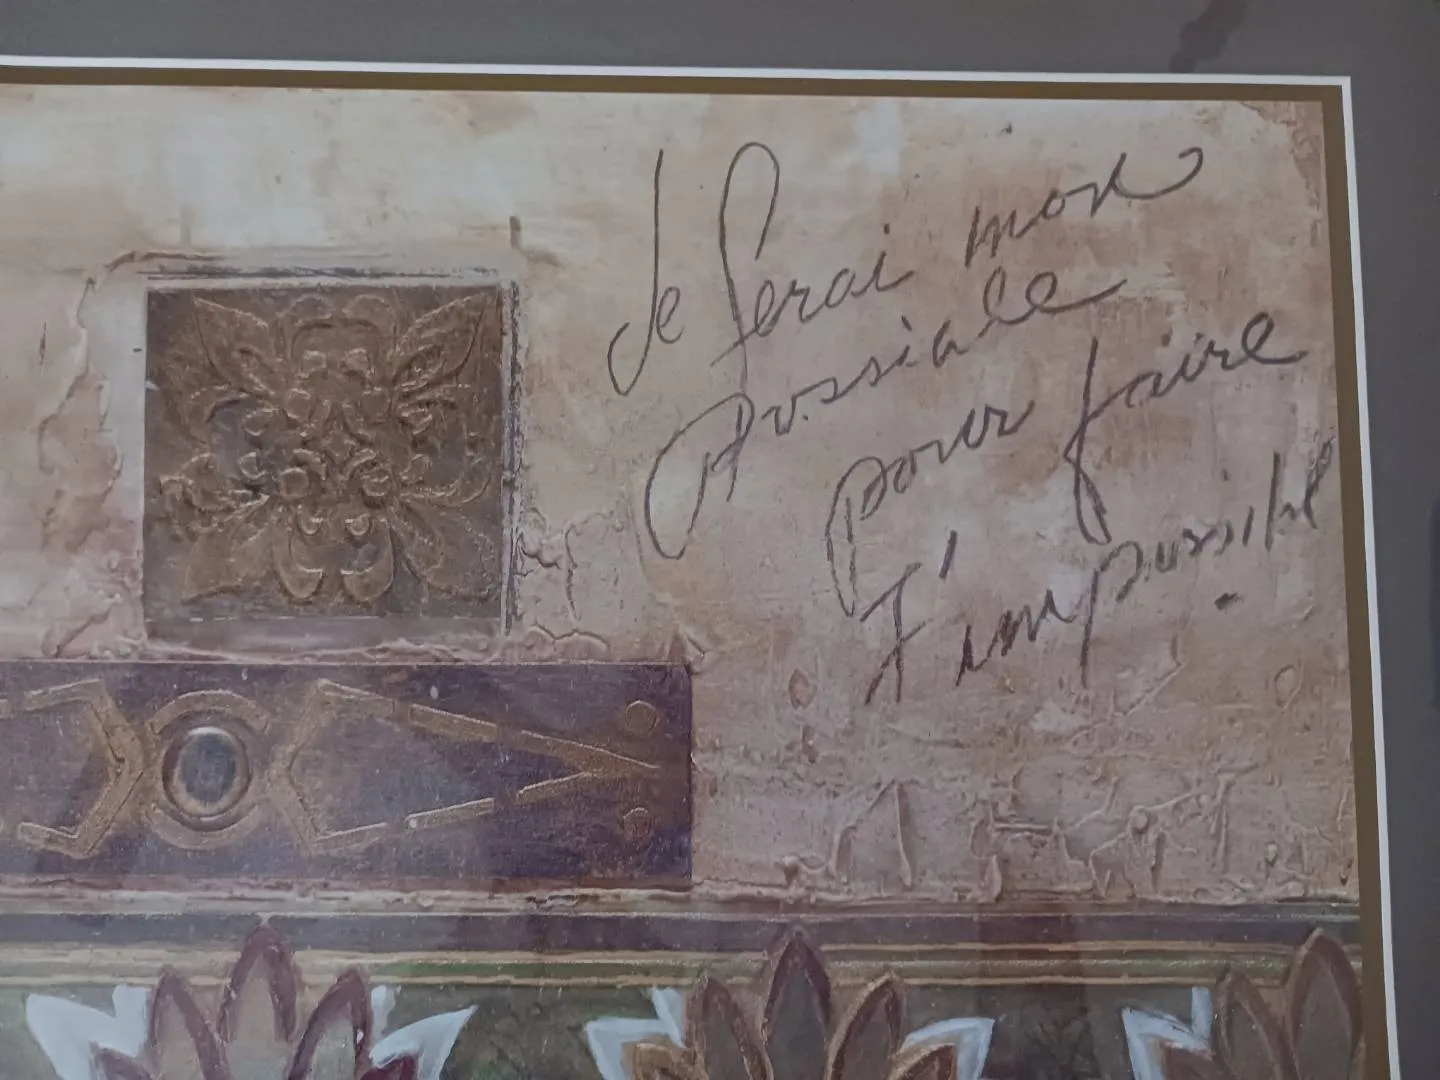 Je ferai mon
possible
pour faire
l'impossible